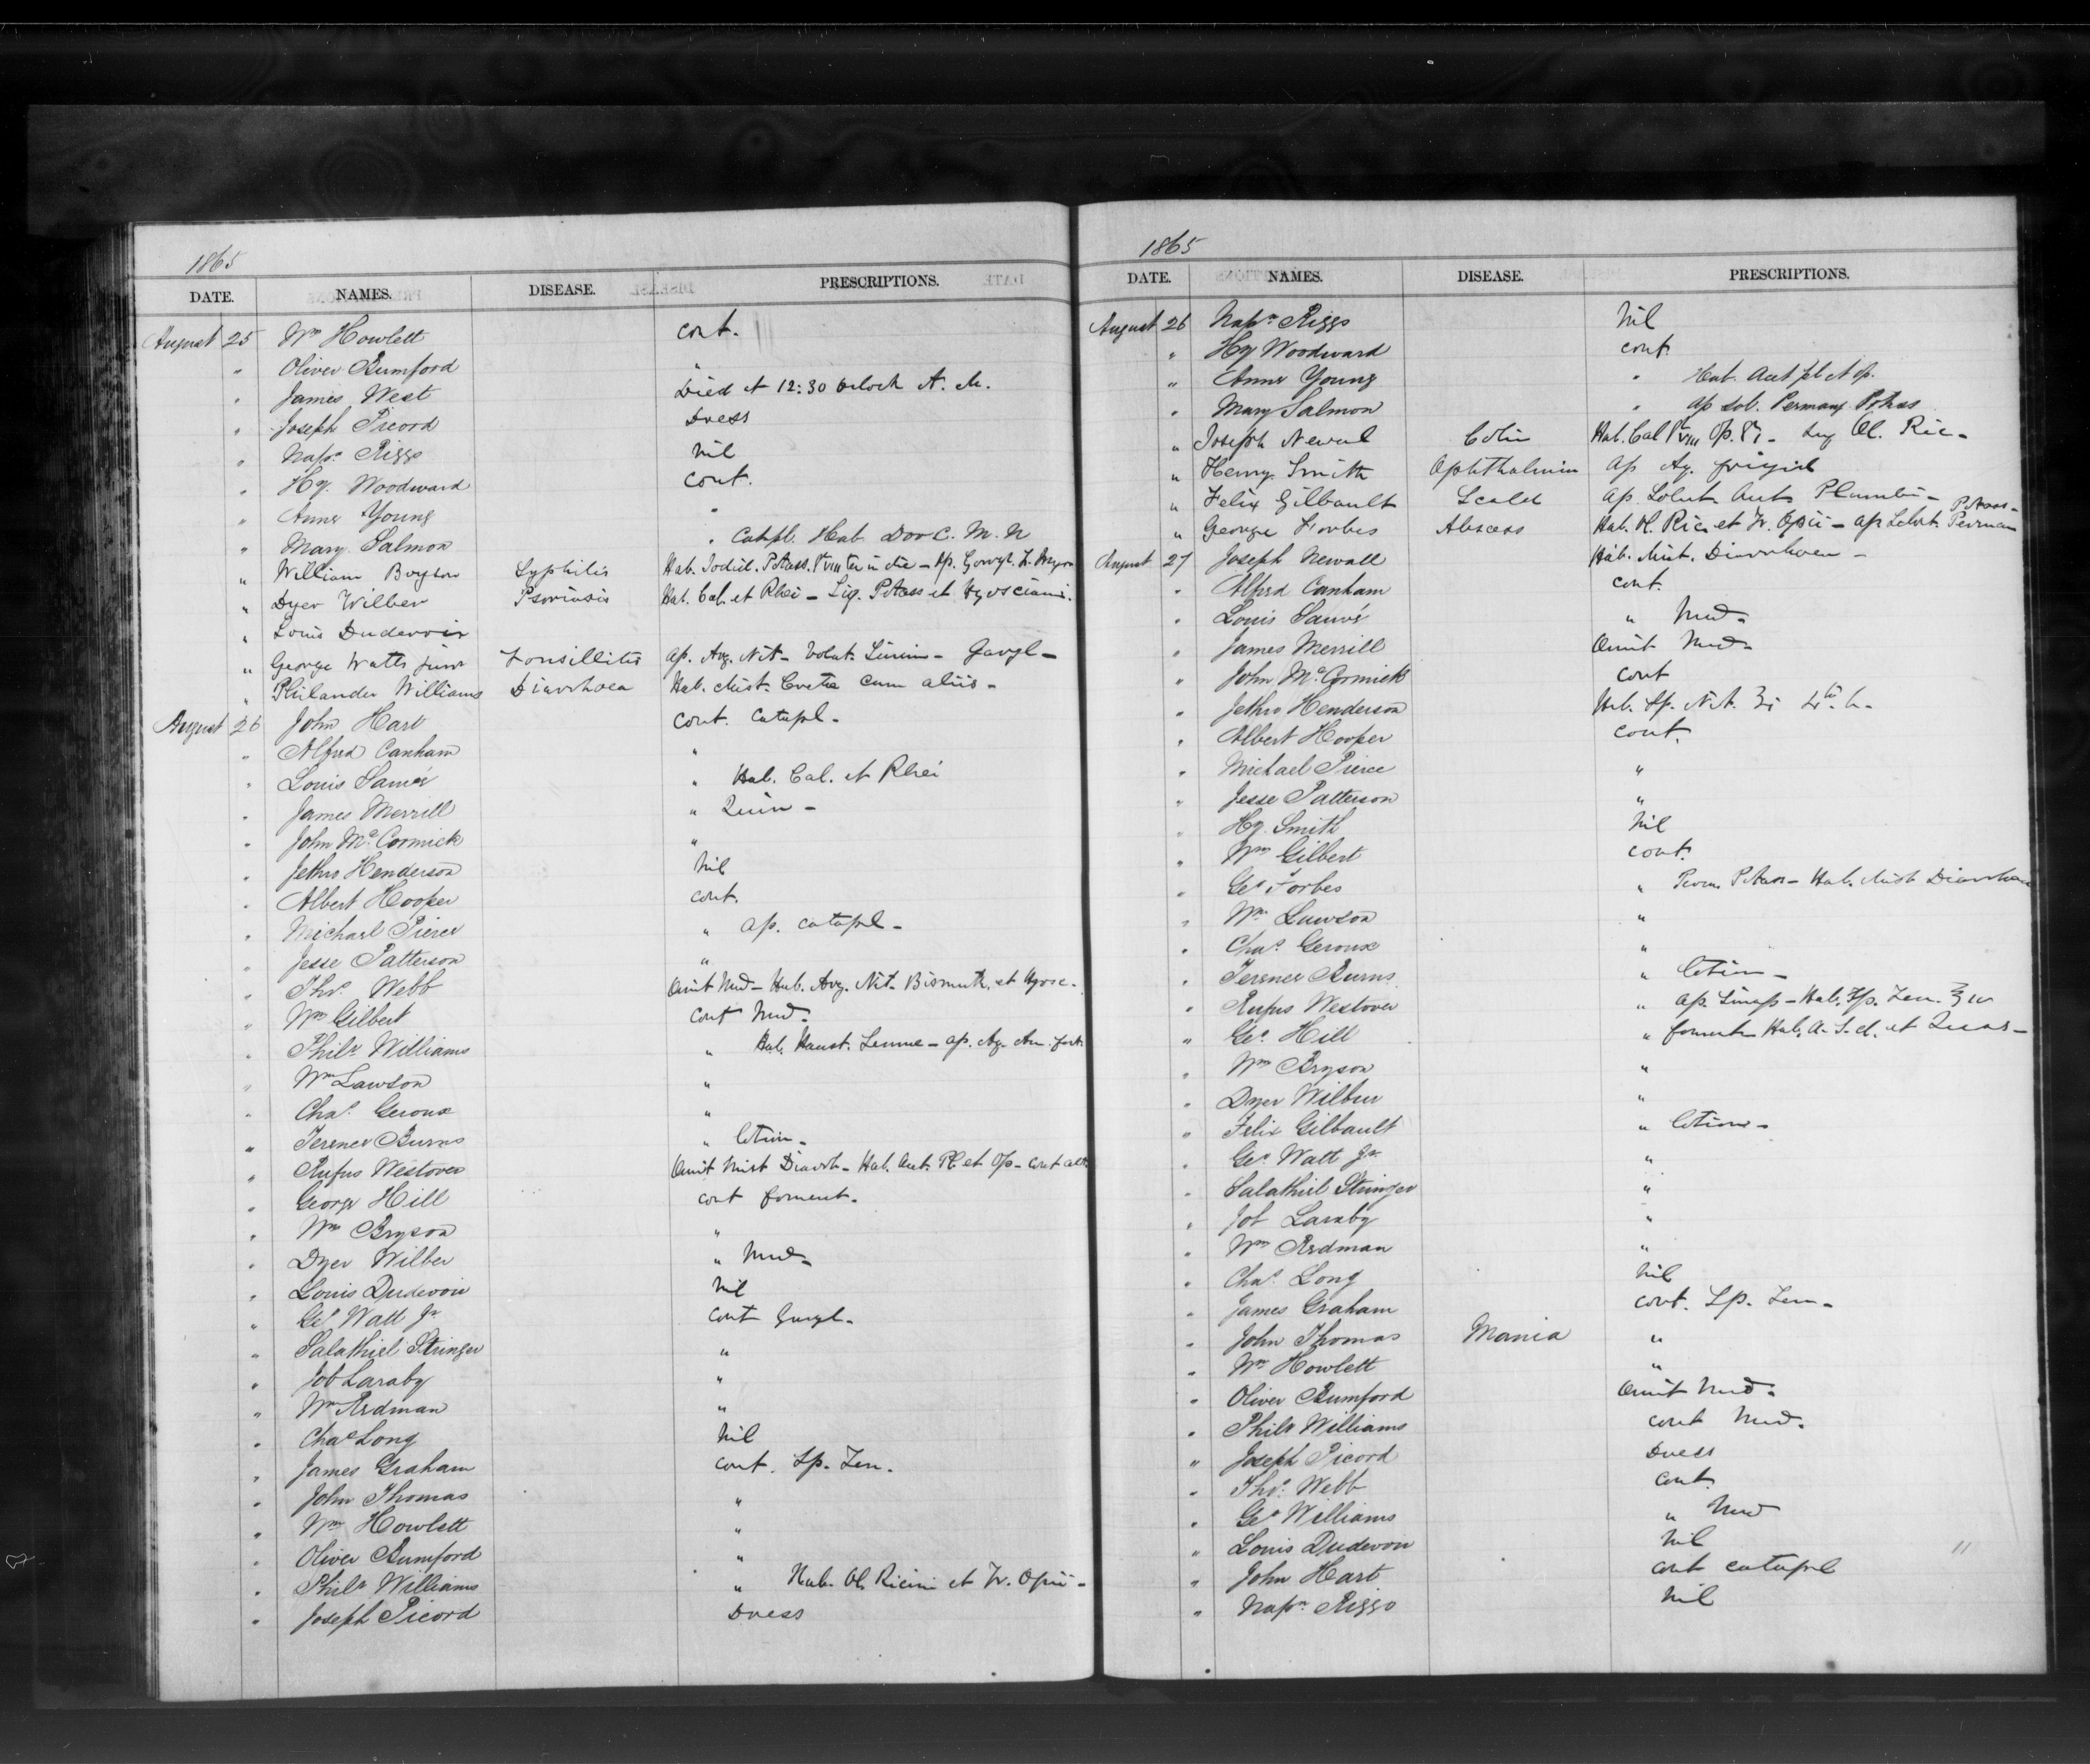 1865
DATE. NAMES. DISEASE. PRESCRIPTIONS.
August 25 Wm Howlett cont.
" Oliver Bumford "
" James West Died at 12:30 oclock A. M.
" Joseph Picord Dress
" Napn Riggs Nil
" Hy. Woodward cont.
" Anne Young "
" Mary Salmon " Catapl. Hab. Dov C. M. N
" William Bryson Syphilis Hab. Iodid. Potass. ter in die - Ap. Gargl.
" Dyer Wilber Psoriasis Hab. Cal. et Rhei - Liq. Potass et Hyosciami.
" Louis Dudevoir
" George Watts junr Tonsillitis Ap. Arg. Nit - Volat. Linim - Gargl -
" Philander Williams Diarrhoea Hab. Mist. Creta cum aliis -
August 26 John Hart cont. catapl -
" Alfred Canham "
" Louis Sauvé " Hab. Cal. et Rhei
" James Merrill " Quin -
" John McCormick "
" Jethro Henderson Nil
" Albert Hooper cont.
" Michael Pierce " ap. catapl -
" Jesse Patterson "
" Thos. Webb Omit Med - Hab. Arg. Nit - Bismuth. et Hyosc -
" Wm Gilbert cont Med -
" Philr Williams " Hab. Haust. Sennae - ap. Aq. Am. fort.
" Wm Lawson "
" Chas. Geroux "
" Terence Burns " lotion -
" Rufus Westover Omit Mist Diarrh - Hab. Aut. Pl. et Op - cont
" George Hill cont foment -
" Wm Bryson "
" Dyer Wilber " Med -
" Louis Dudevoir Nil
" Geo Watt Jr cont Gargl -
" Salathiel Stringer "
" Job Laraby "
" Wm Redman "
" Chas Long Nil
" James Graham cont. Sp. Ten.
" John Thomas "
" Wm Howlett "
" Oliver Bumford "
" Philr Williams " Hab. Ol. Ricini et Tr. Opii -
" Joseph Picord Dress
1865
DATE. NAMES. DISEASE. PRESCRIPTIONS.
August 26 Napn Riggs Nil
" Hy Woodward cont.
" Anne Young " Hab. Acet Pb et Op.
" Mary Salmon " Ap Sol. Permang Potass
" Joseph Newel Colic Hab. Cal viii Op. i - Ol. Ric -
" Henry Smith Ophthalmia Ap Aq. frigid
" Felix Gilbault Scald Ap. Solut. Acet Plumbi -
" George Forbes Abscess Hab. Ol. Ric et Tr. Opii - Ap Solut. Perman Potass -
August 27 Joseph Newall Hab. Mist. Diarrhoea -
" Alfred Canham cont.
" Louis Sauvé " Med -
" James Merrill Omit Med -
" John McCormick cont
" Jethro Henderson Hab. Sp. Nit. ʒi 4th h -
" Albert Hooper cont.
" Michael Pierce "
" Jesse Patterson "
" Hy. Smith Nil
" Wm Gilbert cont.
" Geo Forbes " Perm. Potass - Hab. Mist Diarrhoea
" Wm Lawson "
" Chas. Geroux "
" Terence Burns " lotion -
" Rufus Westover " Ap. Sinap - Hab. Sp. Ten.
" Geo. Hill " foment - Hab. et Quas -
" Wm Bryson "
" Dyer Wilbur "
" Felix Gilbault " lotion -
" Geo Watt Jr. "
" Salathiel Stringer "
" Job Laraby "
" Wm Redman "
" Chas. Long Nil
" James Graham cont. Sp. Ten -
" John Thomas Mania "
" Wm Howlett "
" Oliver Bumford Omit Med -
" Philr Williams cont Med.
" Joseph Picord Dress
" Thos. Webb cont.
" Geo Williams " Med
" Louis Dudevoir Nil
" John Hart cont catapl
" Napn Riggs Nil